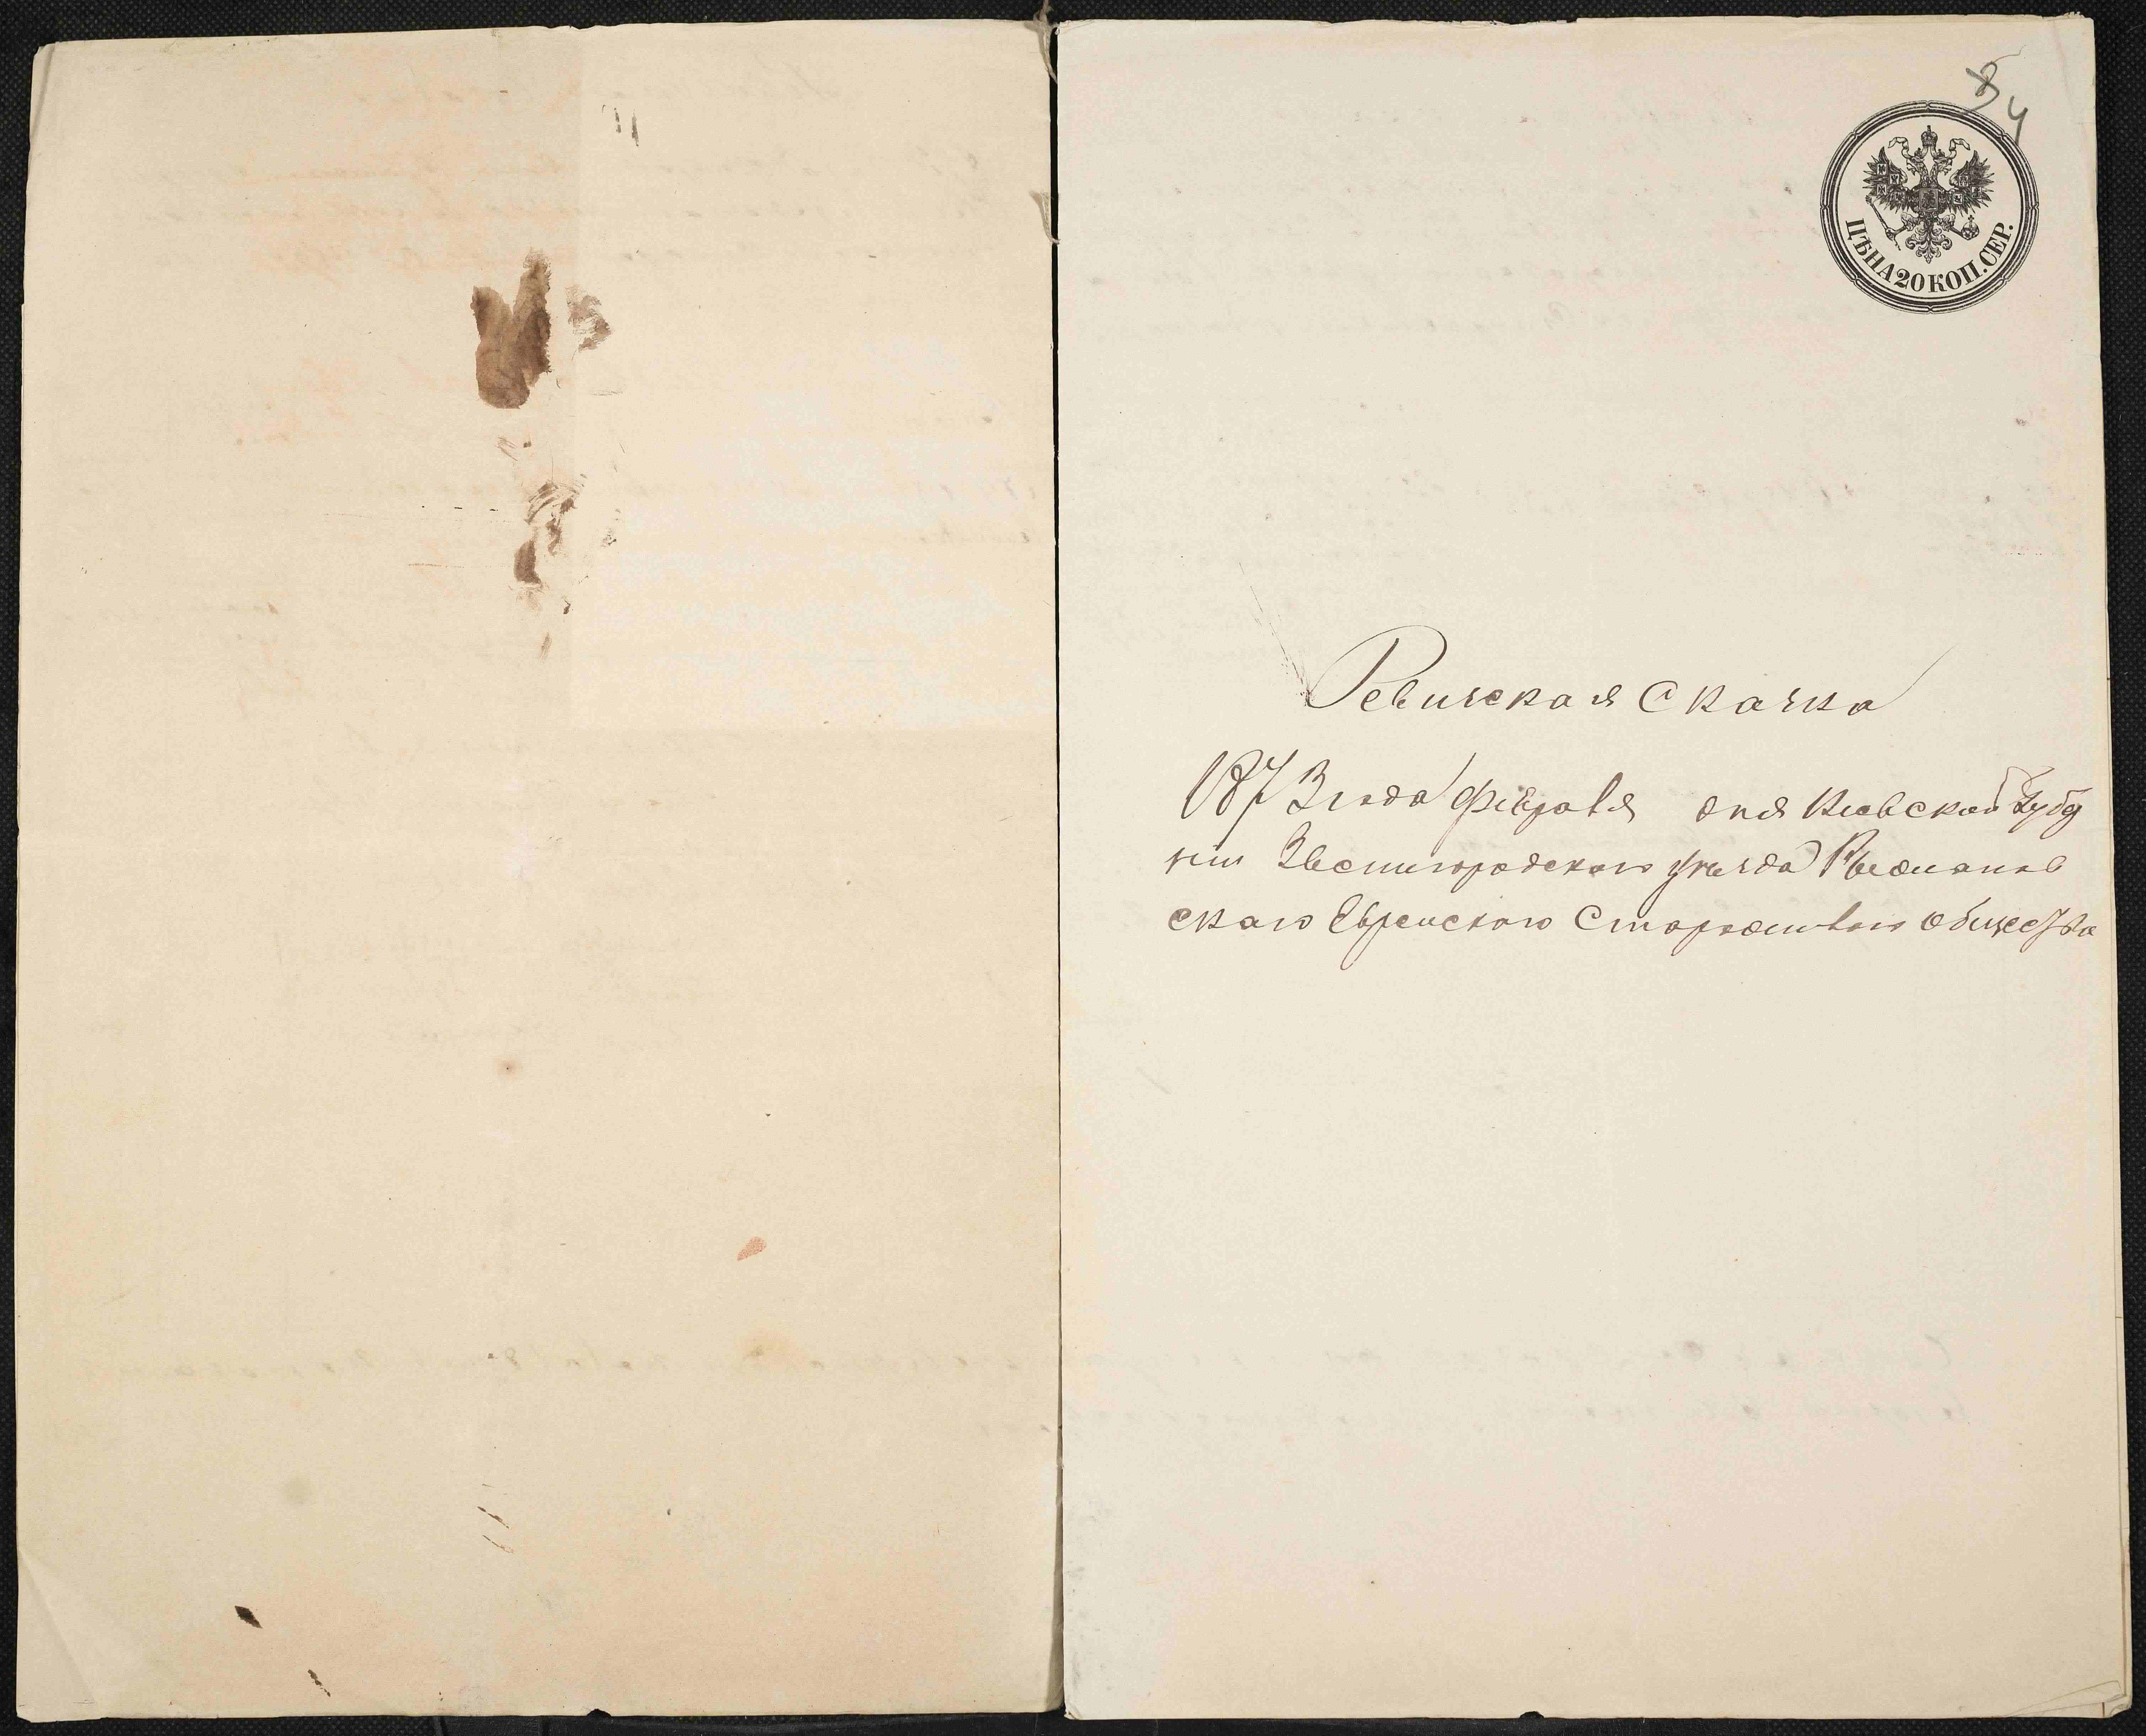 4
ЦѢНА 20 КОП. СЕР.
Ревизская Сказка
1873 года февраля дня Киевской Губер
нии Звенигородского уезда Рыжанов
скаго Еврейского Старожилого общества